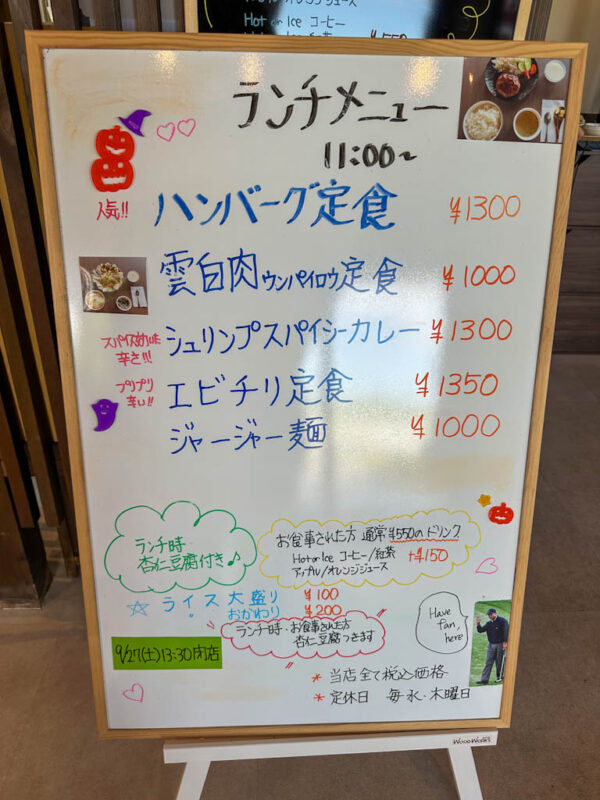 Hot or Ice コーヒー
¥550
ランチメニュー
11:00~
人気!! ハンバーグ定食 ¥1300
雲白肉ウンパイロウ定食 ¥1000
スパイス効いた辛さ!!! シュリンプスパイシーカレー ¥1300
プリプリ辛い!! エビチリ定食 ¥1350
ジャージャー麺 ¥1000
ランチ時
杏仁豆腐付き♪
お食事された方 通常¥550のドリンク
Hot or Ice コーヒー/紅茶 +¥150
アップル/オレンジジュース
☆ ライス大盛り ¥100
〃 おかわり ¥200
ランチ時・お食事された方
杏仁豆腐つきます
Have
fan,
here
9/27(土)13:30閉店
* 当店全て税込価格
* 定休日 毎水・木曜日
WoodWorks